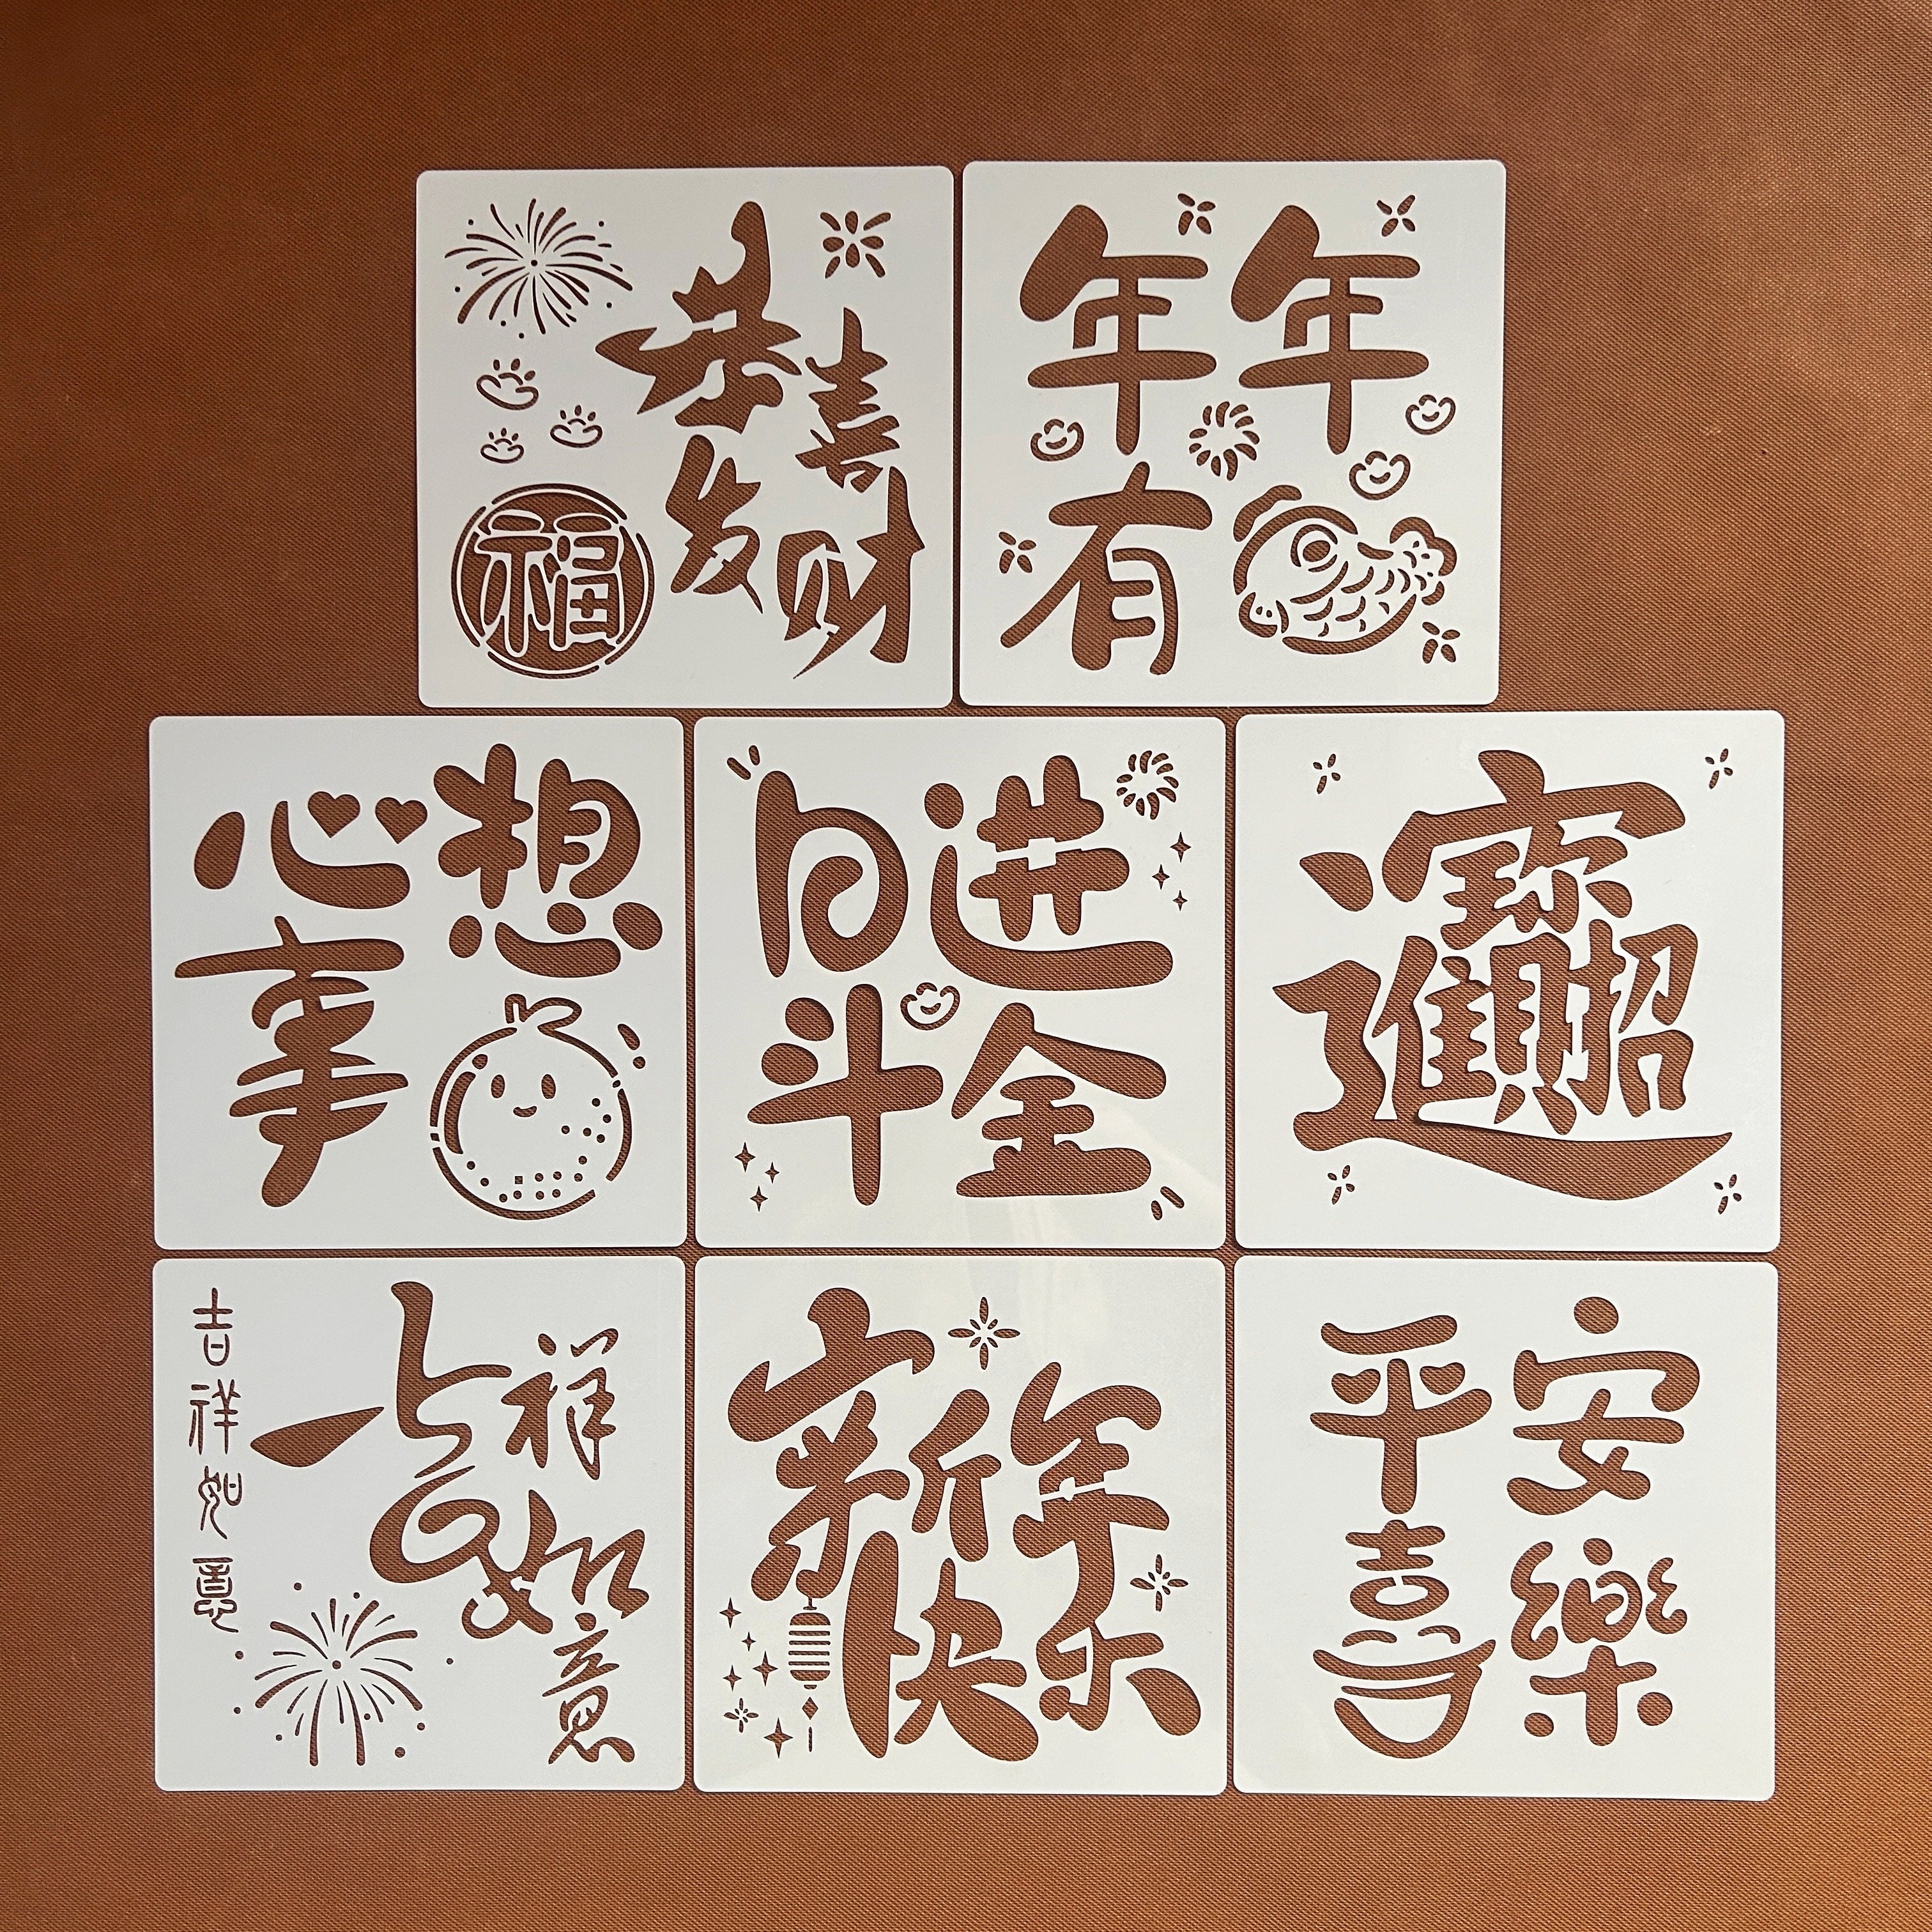 恭喜
发财
福
年年
有
心想
事
日进
斗金
招財進寶
吉祥如意
吉祥如意
新年
快乐
平安
喜樂